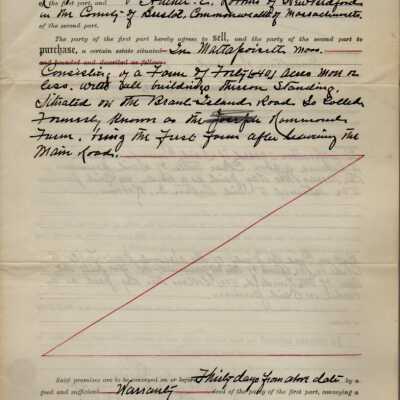 of the first part, and Arthur E. Loomis of New Bedford
in the County of Bristol, Commonwealth of Massachusetts
of the second part.
The party of the first part hereby agrees to sell, and the party of the second part to
purchase, a certain estate situated In Mattapoisett Mass.
and bounded and described as follows:
Consisting of a Farm of Forty (40) Acres more or
less, with all buildings thereon Standing,
Situated on the Brant Island Road So Called
Formerly known as the Joseph Hammond
Farm, being the First Farm after leaving the
Main Road.
Said premises are to be conveyed on or before Thirty days from above date by a
good and sufficient Warranty deed of the party of the first part, conveying a